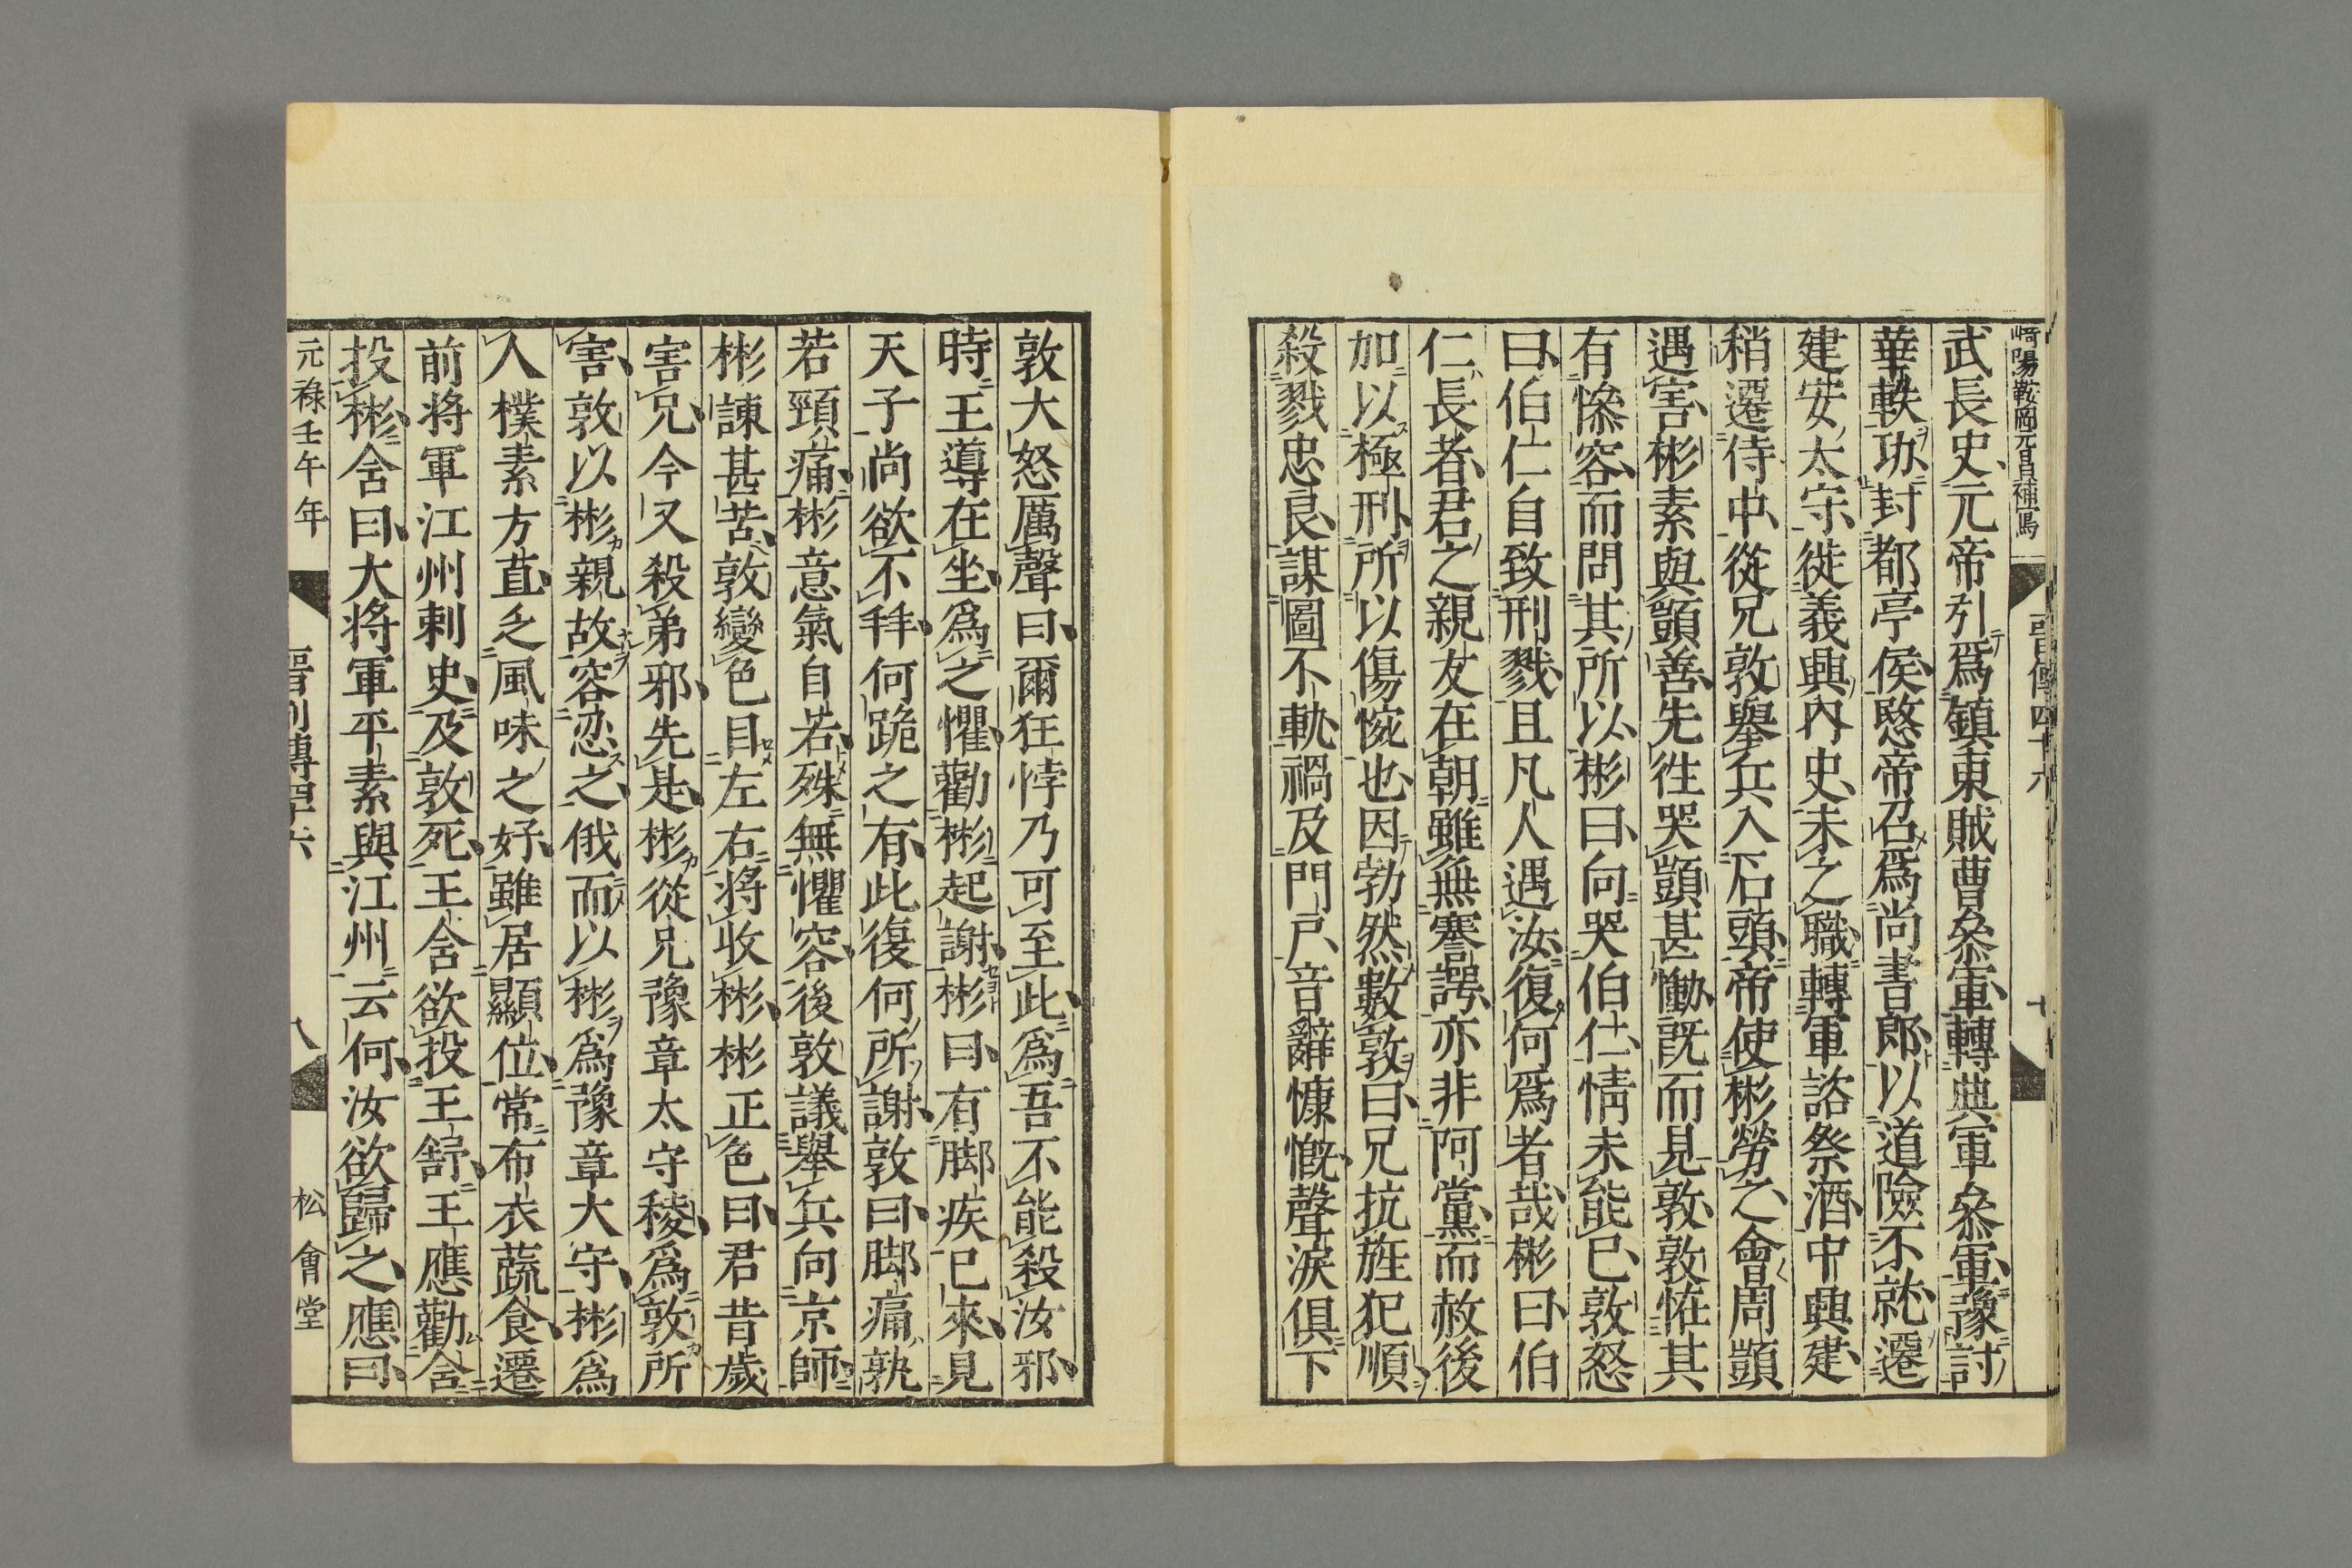 晉傳四十六
七
武長史元帝引爲鎮東賊曹叅軍轉典軍叅軍豫討
華軼功封都亭侯愍帝召爲尚書郎以道險不就遷
建安太守徙義興內史未之職轉軍諮祭酒中興建
稍遷侍中從兄敦舉兵入石頭帝使彬勞之會周顗
遇害彬素與顗善先徃哭顗甚慟旣而見敦敦怪其
有慘容而問其所以彬曰向哭伯仁情未能已敦怒
曰伯仁自致刑戮且凡人遇汝復何爲者哉彬曰伯
仁長者君之親友在朝雖無謇諤亦非阿黨而赦後
加以極刑所以傷惋也因勃然數敦曰兄抗旌犯順
殺戮忠良謀圖不軌禍及門戶音辭慷慨聲淚俱下
敦大怒厲聲曰爾狂悖乃可至此爲吾不能殺汝邪
時王導在坐爲之懼勸彬起謝彬曰有脚疾已來見
天子尚欲不拜何跪之有此復何所謝敦曰脚痛孰
若頸痛彬意氣自若殊無懼容後敦議舉兵向京師
彬諫甚苦敦變色目左右將收彬彬正色曰君昔歲
害兄今又殺弟邪先是彬從兄豫章太守稜爲敦所
害敦以彬親故容忍之俄而以彬爲豫章太守彬爲
人樸素方直乏風味之好雖居顯位常布衣蔬食遷
前将軍江州刺史及敦死王含欲投王舒王應勸含
投彬含曰大將軍平素與江州云何汝欲歸之應曰
元祿壬午年
八
松會堂